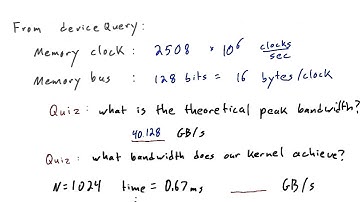 From deviceQuery:
Memory clock: 2508 * 10^6 clocks/sec
Memory bus: 128 bits = 16 bytes/clock
Quiz: what is the theoretical peak bandwidth?
40.128 GB/s
Quiz: what bandwidth does our kernel achieve?
N=1024 time = 0.67ms ____ GB/s